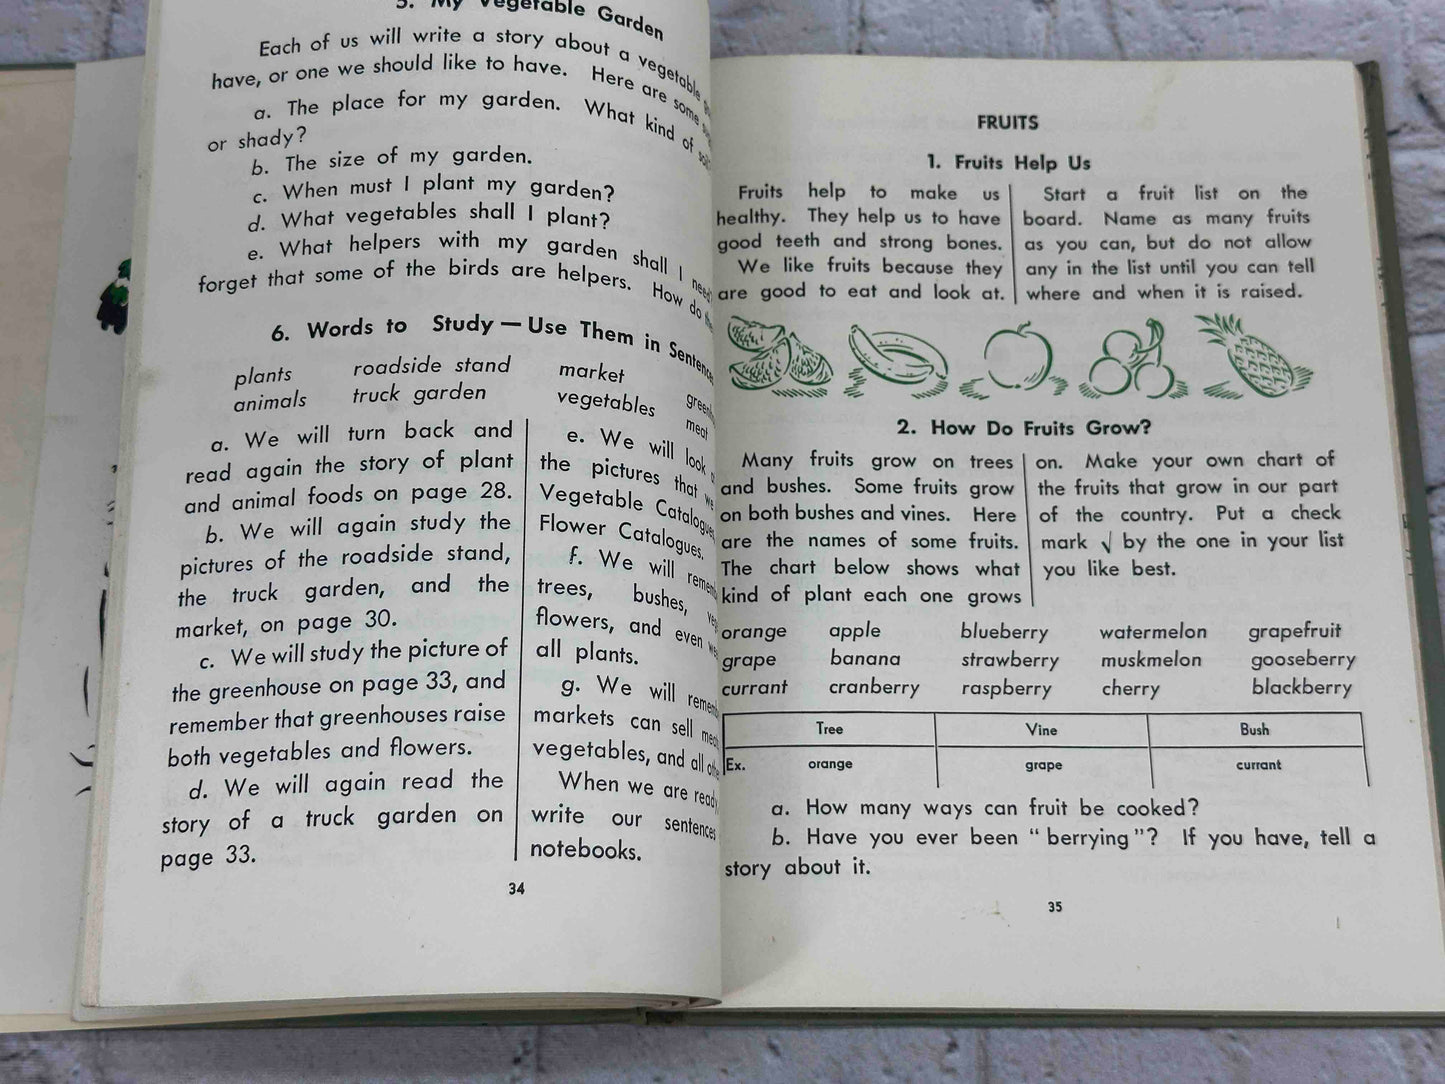 5. My Vegetable Garden
Each of us will write a story about a vegetable
have, or one we should like to have. Here are some
a. The place for my garden. What kind of soil
or shady?
b. The size of my garden.
c. When must I plant my garden?
d. What vegetables shall I plant?
e. What helpers with my garden shall I need
forget that some of the birds are helpers. How do
6. Words to Study — Use Them in Sentences
plants roadside stand market
animals truck garden vegetables meat
a. We will turn back and
read again the story of plant
and animal foods on page 28.
b. We will again study the
pictures of the roadside stand,
the truck garden, and the
market, on page 30.
c. We will study the picture of
the greenhouse on page 33, and
remember that greenhouses raise
both vegetables and flowers.
d. We will again read the
story of a truck garden on
page 33.
e. We will look
the pictures that we
Vegetable Catalogues,
Flower Catalogues.
f. We will
trees, bushes,
flowers, and even
all plants.
g. We will
markets can sell
vegetables, and all
When we are ready
write our sentences
notebooks.
34
FRUITS
1. Fruits Help Us
Fruits help to make us
healthy. They help us to have
good teeth and strong bones.
We like fruits because they
are good to eat and look at.
Start a fruit list on the
board. Name as many fruits
as you can, but do not allow
any in the list until you can tell
where and when it is raised.
2. How Do Fruits Grow?
Many fruits grow on trees
and bushes. Some fruits grow
on both bushes and vines. Here
are the names of some fruits.
The chart below shows what
kind of plant each one grows
on. Make your own chart of
the fruits that grow in our part
of the country. Put a check
mark √ by the one in your list
you like best.
orange apple blueberry watermelon grapefruit
grape banana strawberry muskmelon gooseberry
currant cranberry raspberry cherry blackberry
Tree Vine Bush
Ex. orange grape currant
a. How many ways can fruit be cooked?
b. Have you ever been "berrying"? If you have, tell a
story about it.
35